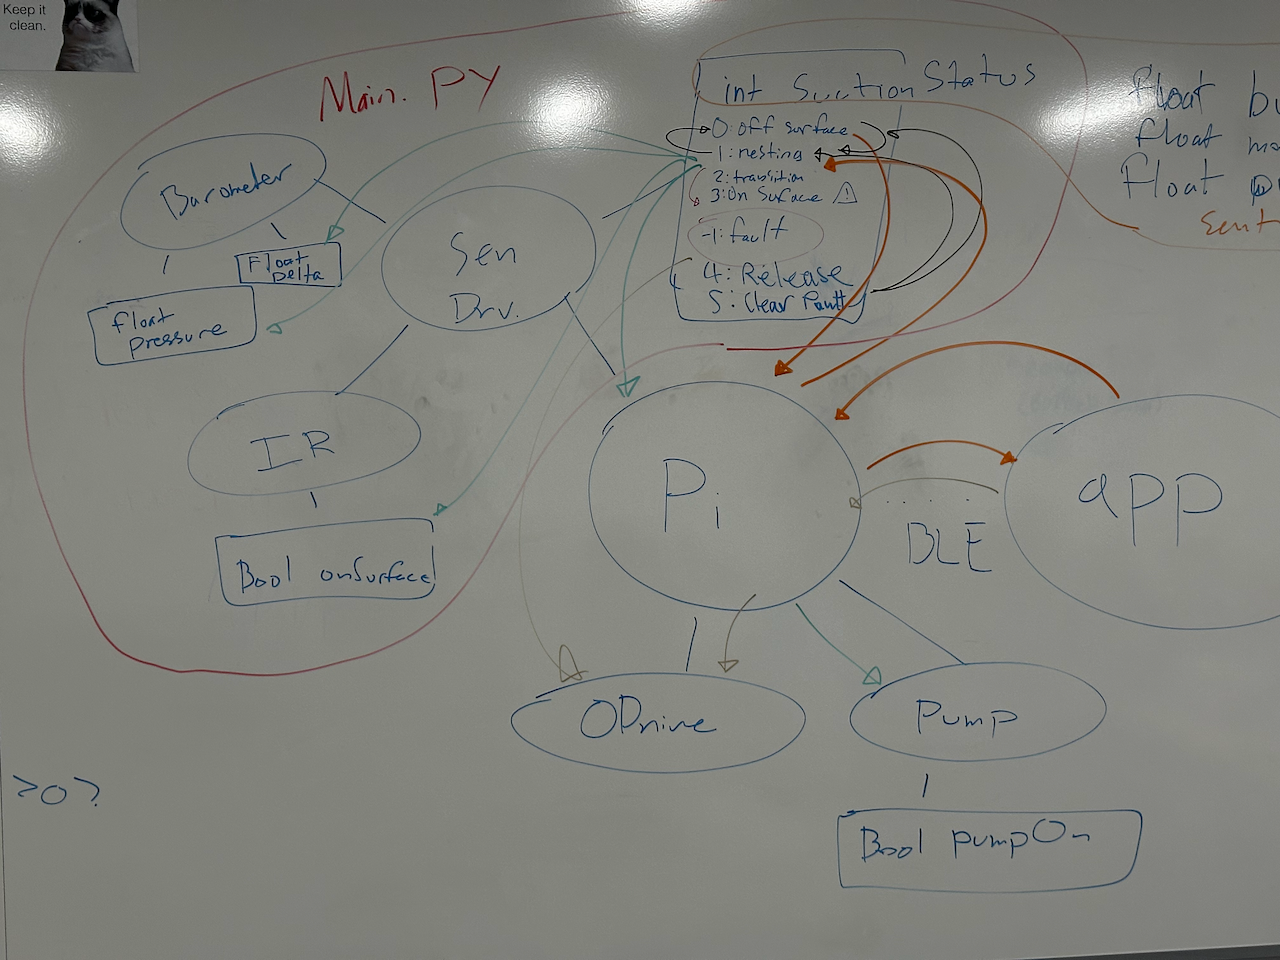 Keep it
clean.
Main. PY
int Suction Status
0: off surface
1: nesting
2: transition
3: On Surface
-1: fault
4: Release
5: Clear Fault
float
float
float
Sent
Barometer
Float
Delta
float
pressure
Sen
Drv.
IR
Bool onSurface
Pi
BLE
app
ODrive
Pump
Bool pumpOn
>0?